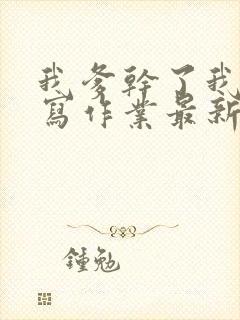 我爹幹了我
寫作業最新
鍾勉